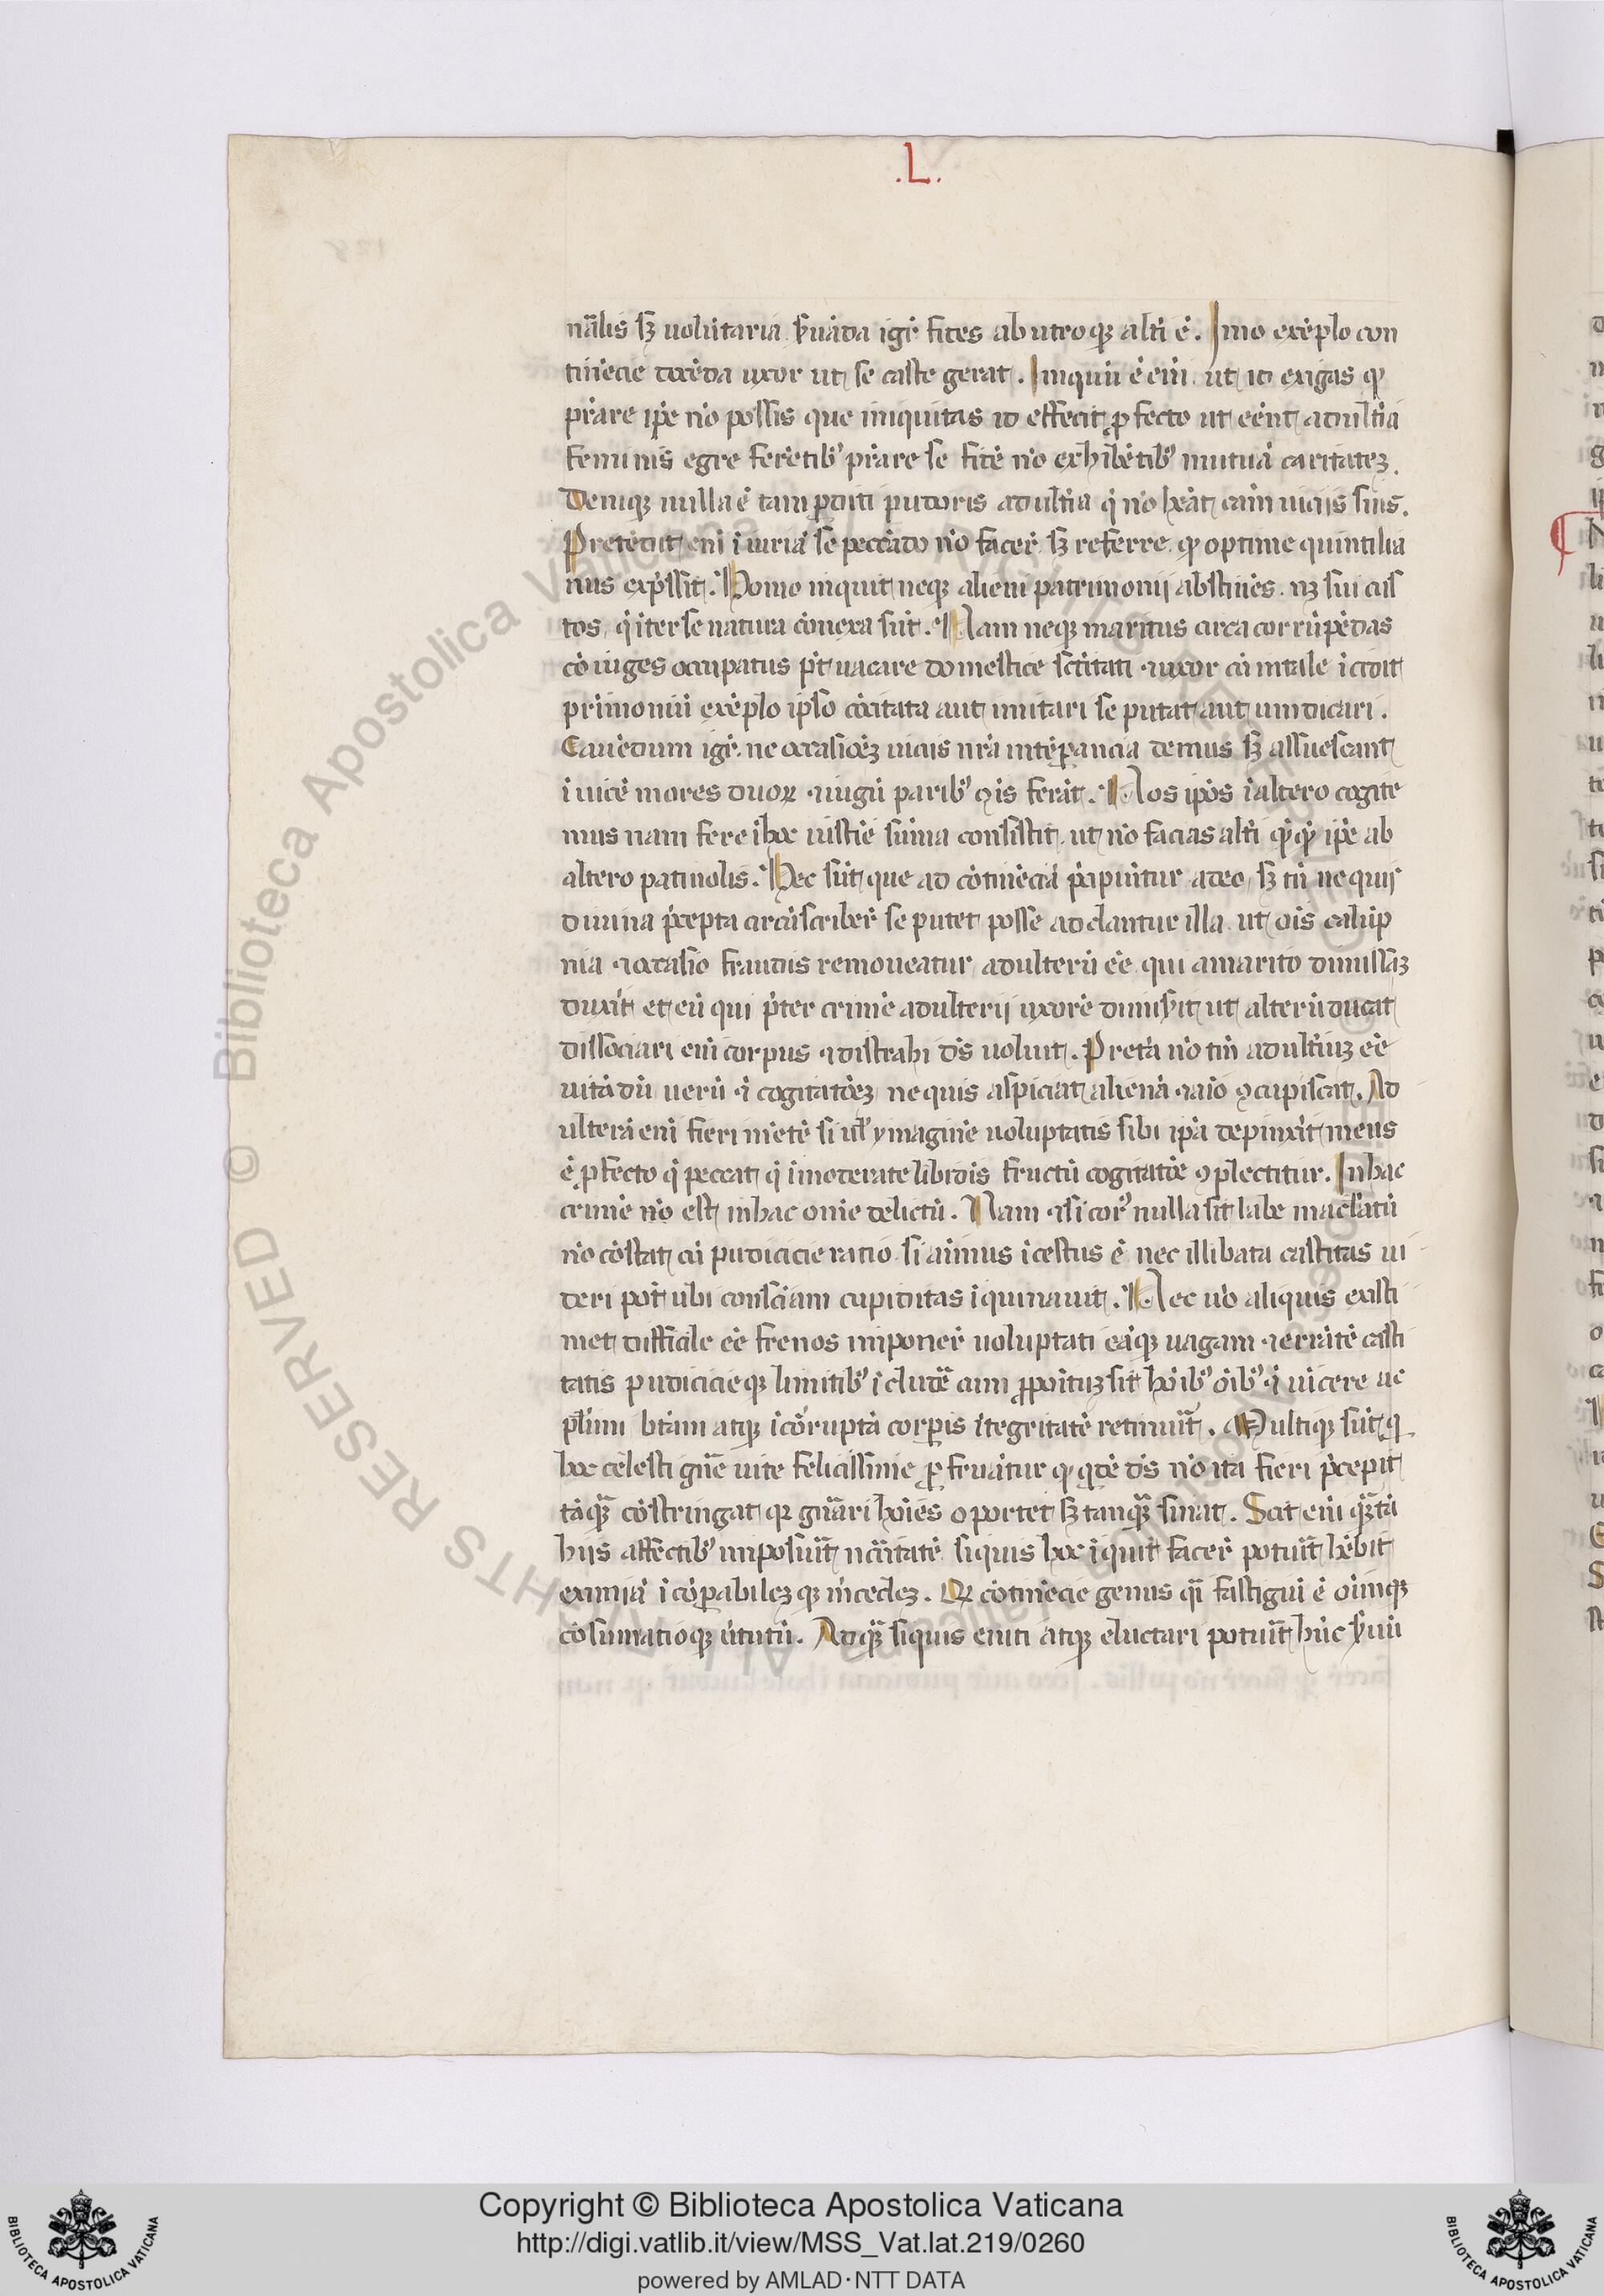 .L.
nālis sꝫ uolūtaria. Seruāda igr̄ fides ab utroqꝫ alti ē. Imo exēplo con
tinēcie docēda uxor ut se caste gerat. Iniquū ē eīn. ut id exigas qđ
p̄stare ip̄e nō possis que iniquitas id effecit profecto ut eēnt adultīa
feminis egre ferētibꝰ p̄stare se fidē nō exhibētibꝰ mutuā caritatēꝫ.
Deniqꝫ nulla ē tam ꝑditi pudoris adultīa q̄ nō hāt cām uicijs suis.
Pretēdūt enī iniuriā se peccādo nō facer̄ sꝫ referre. qđ optime quintilia
nus exp̄ssit. Homo inquit neqꝫ alieni patrimonij abstinēs. nꝫ sui cus
tos, q̄ iter se natura conexa sūt. Nam neqꝫ maritus circa corrūpēdas
cōiuges occupatus pt̄ uacare domestice sctītati ⁊ uxor cū in tale īcidit
p̄rimoniū exēplo ipso cōcitata aut imitari se putat aut uindicari.
Cauēdum igr̄. ne occasiōeꝫ uiciis nr̄a intēꝑancia demus sꝫ assuescant
īuicē mores duoꝝ ⁊ iugū paribꝰ aīs ferāt. Nos ipōs ī altero cogite
mus nam fere ī hoc iusticie sūma consistit. ut nō facias alti qđqđ ip̄e ab
altero pati nolis. Hec sūt que ad cōtinēciā p̄cipiūtur a deo, sꝫ tn̄ ne quis
diuina p̄cepta circūscriber̄ se putet posse addantur illa. ut oīs calūp
nia ⁊ occasio fraudis remoueatur adulterū eē. qui a marito dimissāꝫ
duxīt et eū qui p̄ter crimē adulterij uxorē dimiserit ut alterā ducat
dissociari enī corpus ⁊ distrahi dōs uoluit. Pretā nō tm̄ adultīuꝫ eē
uitādū uerū ⁊ cogitatōeꝫ ne quis aspiciat alienā ⁊ aīo ꝯcupiscat. Ad
ulterā enī fieri mētē si uł ymaginē uoluptatis sibi ip̄a depinxit mens
ē ꝓfecto q̄ peccat q̄ īmoderate libidīs fructū cogitatōe ꝯplectitur. In hac
crimē nō est in hac om̄e delictū. Nam ⁊ si corꝰ nulla sit labe maclatū
nō cōstat cū pudicicie ratio si aīmus īcestus ē nec illibata castitas ui
deri pot ubi consciam cupiditas īquinauit. Nec uō aliquis existi
met difficile eē frenos imponer̄ uoluptati eāqꝫ uagam ⁊ errātē casti
tatis pudicicieqꝫ limitibꝰ īcludē cum ꝓpoitūꝫ sit hoībꝰ oībꝰ ⁊ uīcere ac
plīmi btām atqꝫ īcōruptā corꝑis ītegritatē retinuīt. Multiqꝫ sūt q̄
hoc celesti gn̄e uite felicissime ꝑfruātur qđ qdē dōs nō ita fieri p̄cepit
tāqꝫ cōstringat qꝛ gn̄ari hoīes oportet sꝫ tanqꝫ sinat. Scit enī qꝫtā
hijs affectibꝰ imposuīt ncc̄itatē siquis hoc īquit facer̄ potuīt hēbit
eximiā īcōꝑabilēꝫqꝫ mcedēꝫ. Qꝛ cōtinēcie genus qī fastigiū ē oīmqꝫ
cōsumatioqꝫ uirtutū. Ad qꝫ siquis eniti atqꝫ eluctari potuīt hūc seruū
Copyright © Biblioteca Apostolica Vaticana
http://digi.vatlib.it/view/MSS_Vat.lat.219/0260
powered by AMLAD·NTT DATA